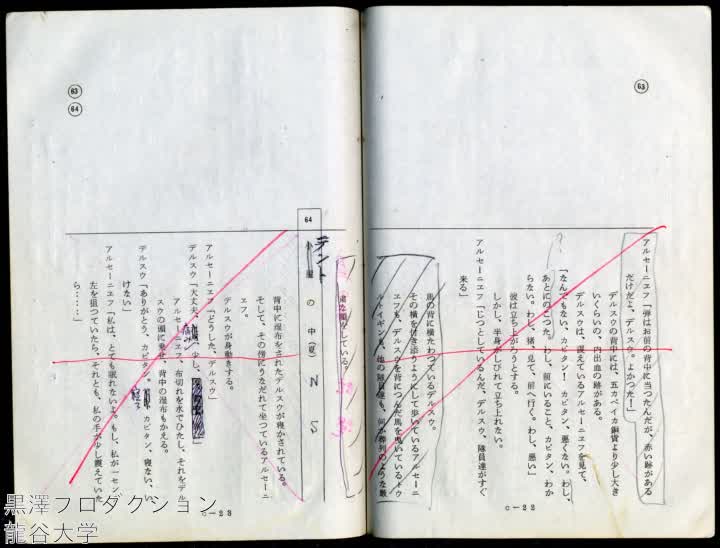 63
アルセーニエフ「弾はお前の背中に当つたんだが、赤い跡がある
だけだよ、デルスウ。よかつた！」
デルスウの背中には、五カペイカ銅貨より少し大き
いくらいの、内出血の跡がある。
デルスウは、震えているアルセーニエフを見て、
「なんでもない、カピタン！　カピタン、悪くない。わし、
あとにのこつた。わし、前にいること、カピタン、わか
らない。わし、猪、見て、前へ行く。わし、悪い」
彼は立ち上がろうとする。
しかし、半身がしびれて立ち上れない。
アルセーニエフ「じつとしているんだ、デルスウ、隊員達がすぐ
来る」
？
馬の背に横たわつているデルスウ。
その横を付き添うようにして歩いているアルセーニ
エフも、デルスウを背につんだ馬を曳いているトウ
ルトイギンも、他の隊員達も、何か葬列のような厳
C—22
粛な顔をしている。
63
64
64
テント
の中(夜)
背中に湿布をされたデルスウが寝かされている。
そして、その傍にうなだれて坐つているアルセーニ
エフ。
デルスウが身動きする。
アルセーニエフ「どうした、デルスウ」
デルスウ「大丈夫、少し、
痛み
アルセーニエフ、布切れを水でひたし、それをデル
スウの頭に乗せ、背中の湿布もかえる。
デルスウ「ありがとう、カピタン。カピタン、寝ない、い
けない」
アルセーニエフ「私は、とても眠れないよ。もし、私が一センチ
左を狙つていたら、それとも、私の手が少し震えていた
ら……」
C—23
黒澤プロダクション
龍谷大学